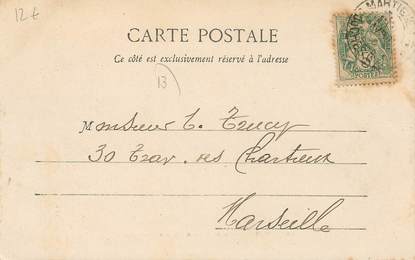 12 €
CARTE POSTALE
Ce côté est exclusivement réservé à l'adresse
13
Monsieur E. Trucy
30 Trav. des Chartreux
Marseille
MARTIG
POSTES